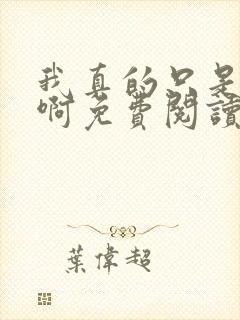 我真的只是
啊免費閱讀
葉偉超